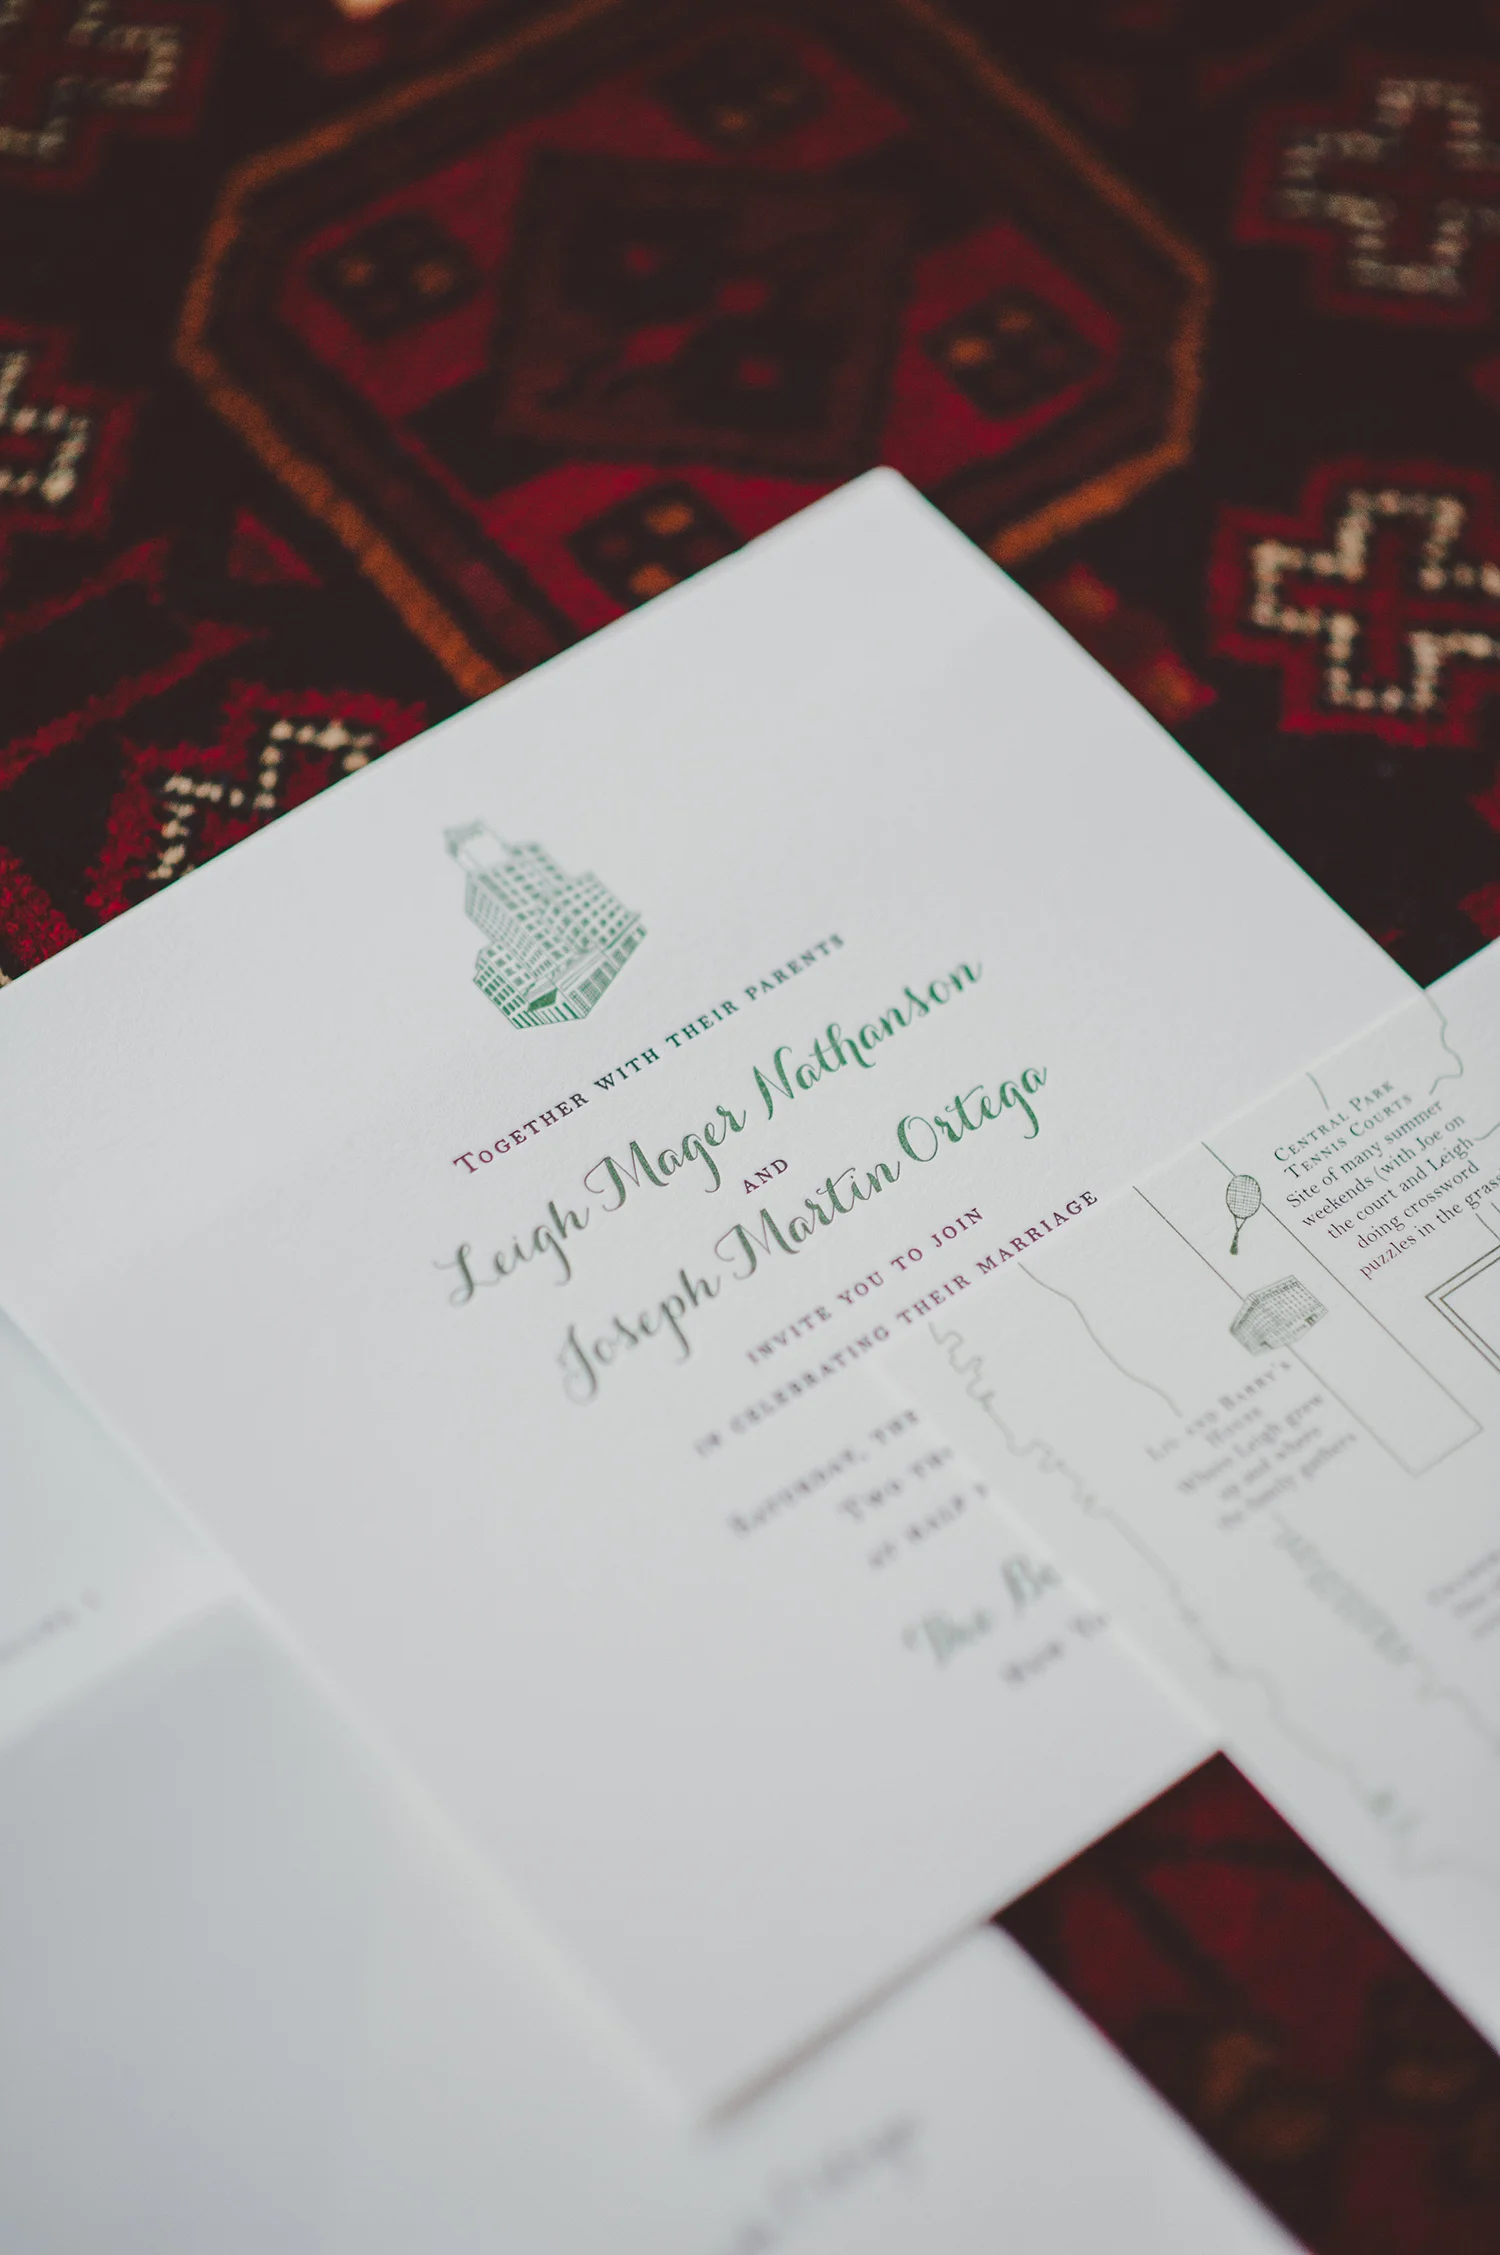 Together with their parents
Leigh Mager Nathanson
and
Joseph Martin Ortega
invite you to join
in celebrating their marriage
Saturday, the
Two
at half
The
New
Central Park
Tennis Courts
Site of many summer
weekends (with Joe on
the court and Leigh
doing crossword
puzzles in the grass
Liz and Barry's
House
Where Leigh grew
up and where
the family gathers